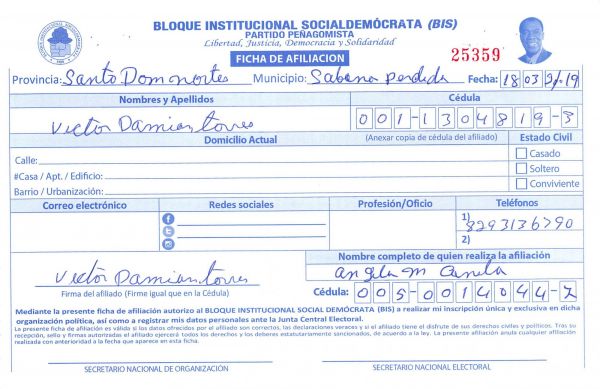 BLOQUE INSTITUCIONAL SOCIALDEMÓCRATA (BIS)
PARTIDO PEÑAGOMISTA
Libertad, Justicia, Democracia y Solidaridad
FICHA DE AFILIACION
25359
Provincia: Santo Dom nortes Municipio: Sabana perdida Fecha: 18 03 19
Nombres y Apellidos Cédula
Victor Damian torres 001-1304819-3
Domicilio Actual (Anexar copia de cédula del afiliado) Estado Civil
Calle: Casado
#Casa / Apt. / Edificio: Soltero
Barrio / Urbanización: Conviviente
Correo electrónico Redes sociales Profesión/Oficio Teléfonos
1) 8293136790
2)
Nombre completo de quien realiza la afiliación
Victor Damian torres angela m
Firma del afiliado (Firme igual que en la Cédula) Cédula: 005-0014044-7
Mediante la presente ficha de afiliación autorizo al BLOQUE INSTITUCIONAL SOCIAL DEMÓCRATA (BIS) a realizar mi inscripción única y exclusiva en dicha
organización política, así como a registrar mis datos personales ante la Junta Central Electoral.
La presente ficha de afiliación es válida si los datos ofrecidos por el afiliado son correctos, las declaraciones veraces y si el afiliado tiene el disfrute de sus derechos civiles y políticos. Tras su
recepción, sello y firmas autorizadas el afiliado ejercerá todos los derechos y los deberes estatutariamente sancionados, de acuerdo a la ley. La presente afiliación anula cualquier afiliación
realizada con anterioridad a la fecha que aparece en esta ficha.
SECRETARIO NACIONAL DE ORGANIZACIÓN SECRETARIO NACIONAL ELECTORAL